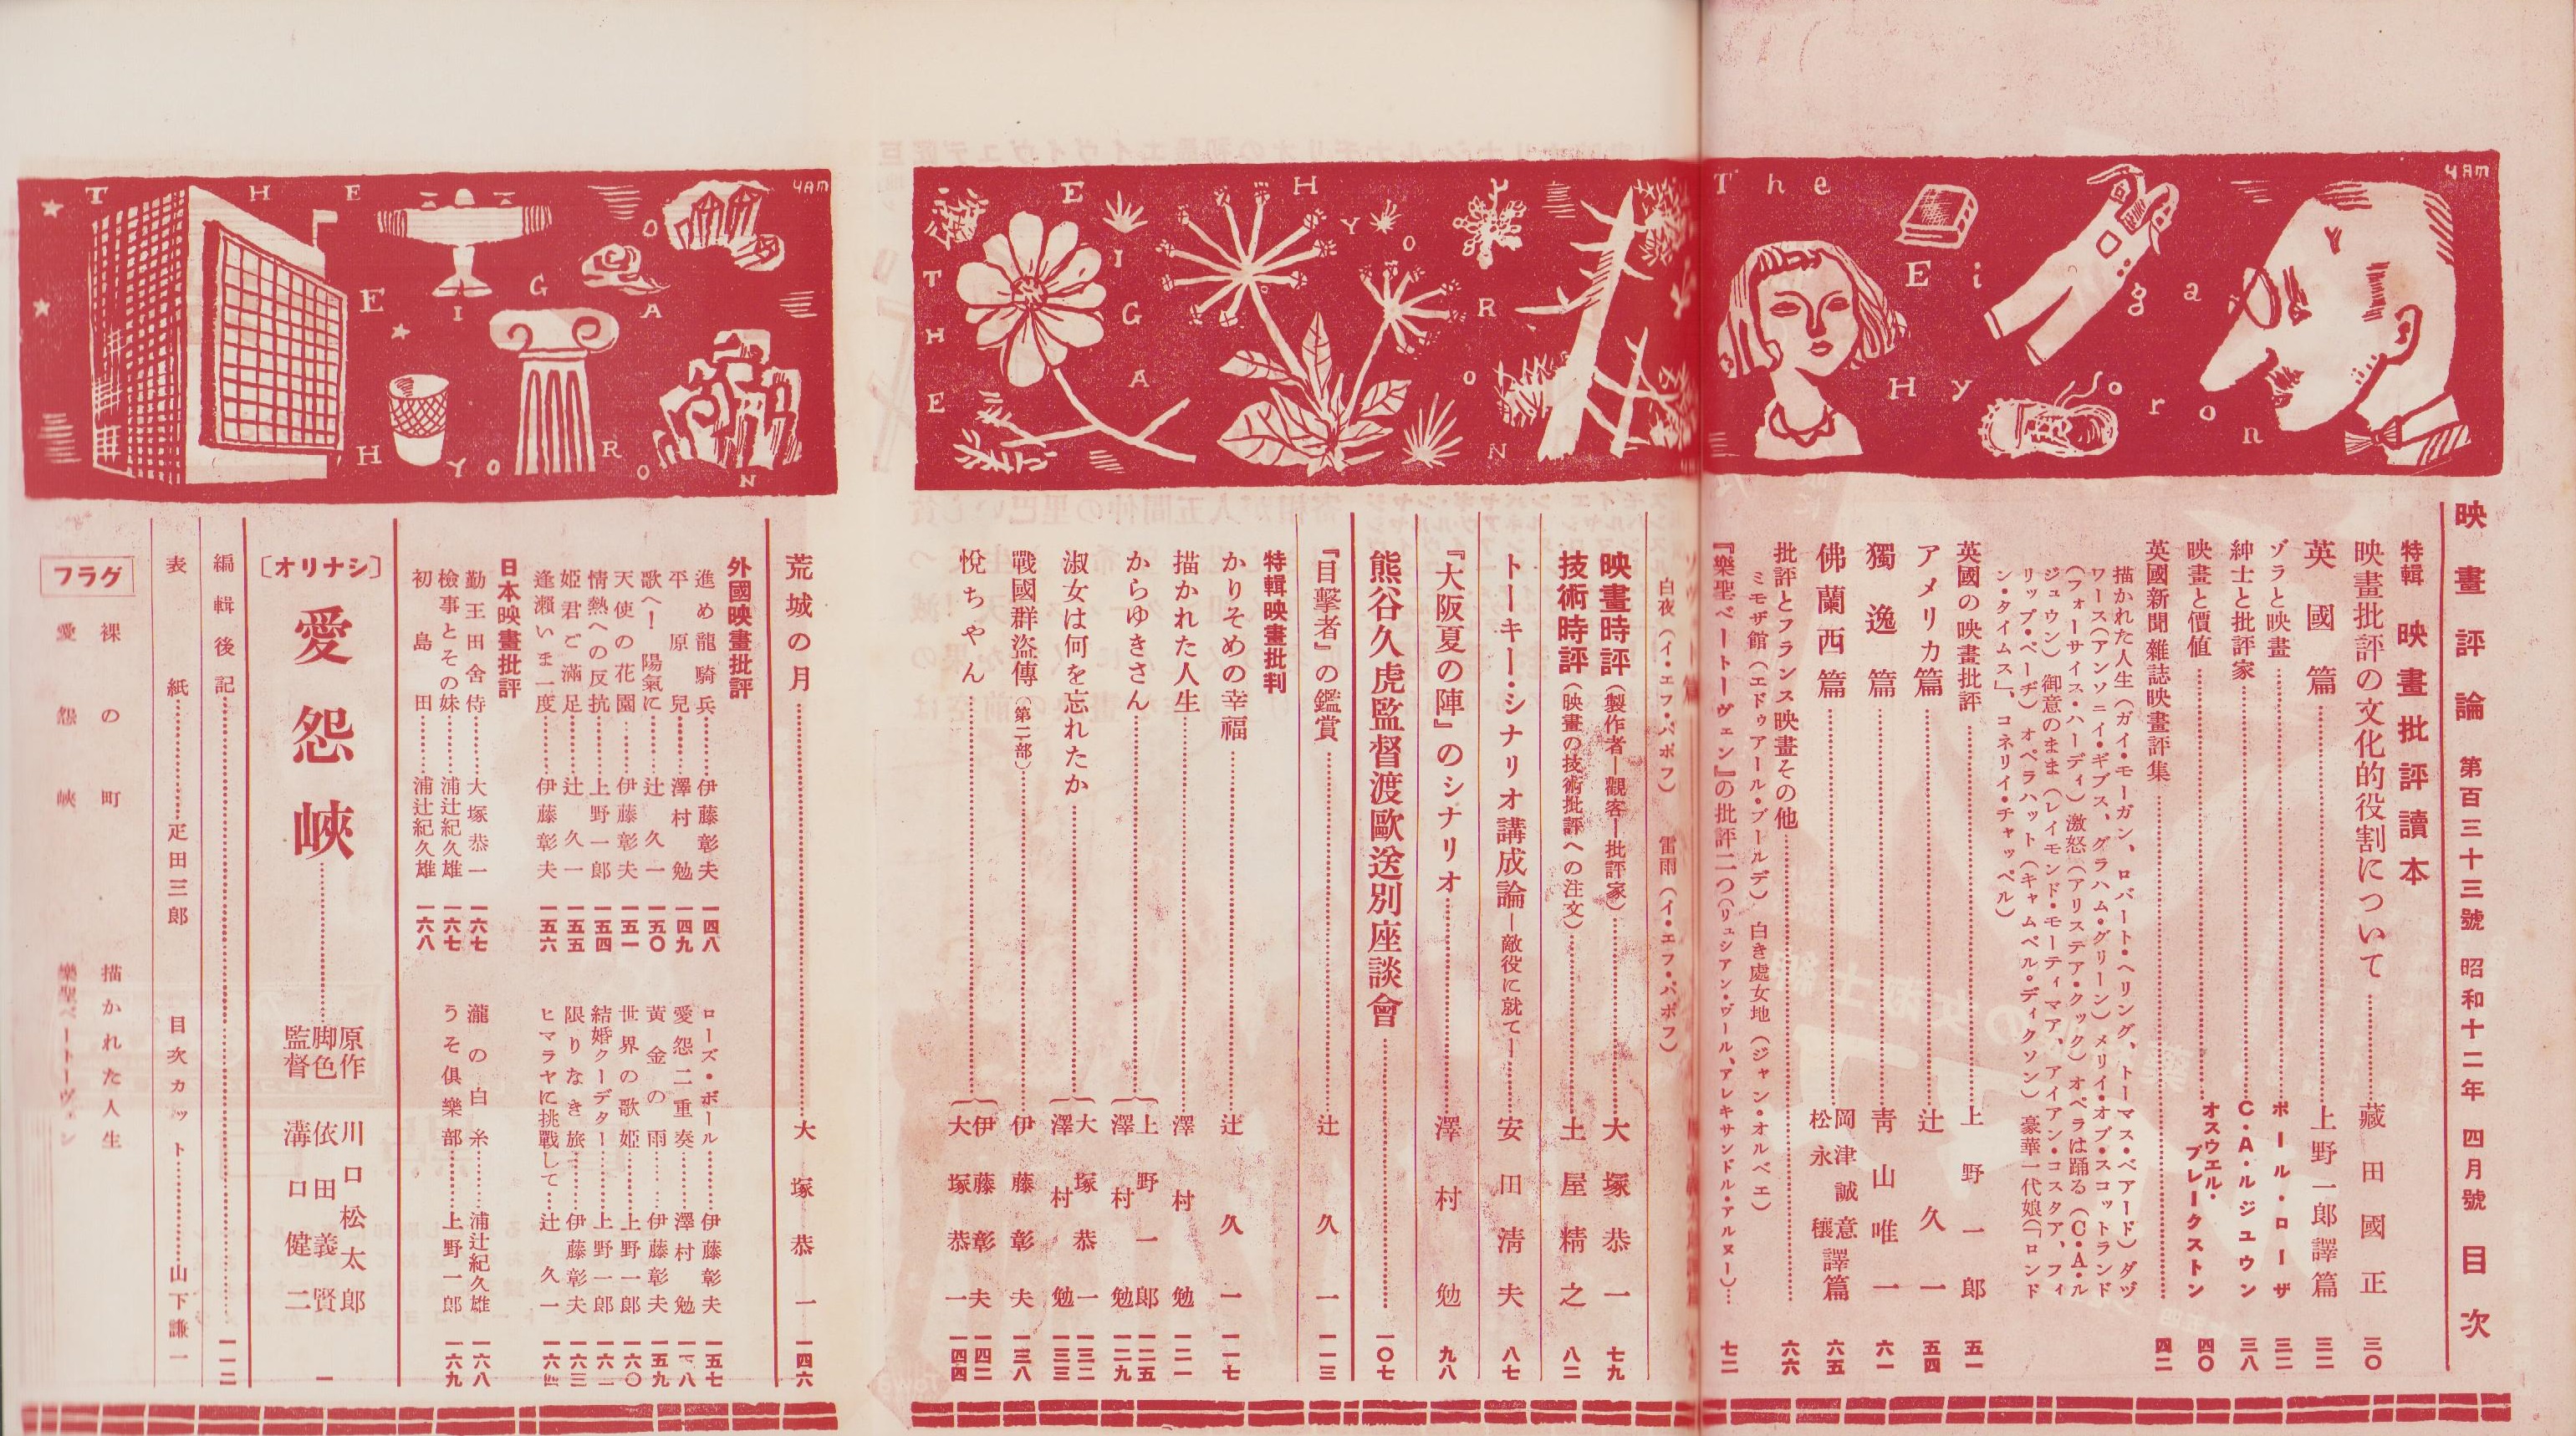 映畫評論 第百三十三號 昭和十二年 四月號 目次
特輯 映畫批評讀本
映畫批評の文化的役割について……藏田國正 三〇
英國篇……上野一郎譯篇 三二
ゾラと映畫……ポール・ローザ 三二
紳士と批評家……C・A・ルジユウン 三八
映畫と價値……オスウエル・ブレークストン 四〇
英國新聞雜誌映畫評集……四二
描かれた人生(ガイ・モーガン、ロバート・ヘリング、トーマス・ベアード)ダヴ
ワース(アンソニイ・ギブス、グラハム・グリーン)メリイ・オブ・スコットランド
(フォーサイス・ハーディ)激怒(アリステア・クック)オペラは踊る(C・A・ル
ジュウン)御意のまま(レイモンド・モーティマア、アイアン・コスタア、フィ
リップ・ページ)オペラハット(キャムベル・ディクソン)豪華一代娘(「ロンド
ン・タイムス」、コネリイ・チャッペル)
英國の映畫批評……上野一郎 五一
アメリカ篇……辻久一 五四
獨逸篇……靑山唯一 六一
佛蘭西篇……岡津誠意 松永穰 譯篇 六五
批評とフランス映畫その他……六六
ミモザ館(エドゥアール・ブールデ) 白き處女地(ジャン・オルベエ)
『樂聖ベートーヴェン』の批評二つ(リュシアン・ヴール、アレキサンドル・アルヌー)… 七二
白夜(イ・エフ・パポフ) 雷雨(イ・エフ・パポフ)
映畫時評(製作者—觀客—批評家)……大塚恭一 七九
技術時評(映畫の技術批評への注文)……土屋精之 八二
トーキー・シナリオ講成論—敵役に就て—……安田淸夫 八七
『大阪夏の陣』のシナリオ……澤村勉 九八
熊谷久虎監督渡歐送別座談會……一〇七
『目擊者』の鑑賞……辻久一 一一三
特輯映畫批判
かりそめの幸福……辻久一 一一七
描かれた人生……澤村勉 一二一
からゆきさん……上野一郎 一二五 澤村勉 一二九
淑女は何を忘れたか……大塚恭一 一三二 澤村勉 一三三
戰國群盜傳(第二部)……伊藤彰夫 一三八
悅ちやん……伊藤彰夫 一四二 大塚恭一 一四四
荒城の月……大塚恭一 一四六
外國映畫批評
進め龍騎兵……伊藤彰夫 一四八
平原兒……澤村勉 一四九
歌へ!陽氣に……辻久一 一五〇
天使の花園……伊藤彰夫 一五一
情熱への反抗……上野一郎 一五四
姬君ご滿足……辻久一 一五五
逢瀨いま一度……伊藤彰夫 一五六
ローズ・ボール……伊藤彰夫 一五七
愛怨二重奏……澤村勉 一五八
黃金の雨……伊藤彰夫 一五九
世界の歌姬……上野一郎 一六〇
結婚クーデター……上野一郎 一六一
限りなき旅……伊藤彰夫 一六三
ヒマラヤに挑戰して……辻久一 一六四
日本映畫批評
勤王田舍侍……大塚恭一 一六七
檢事とその妹……浦辻紀久雄 一六七
初島田……浦辻紀久雄 一六八
瀧の白糸……浦辻紀久雄 一六八
うそ俱樂部……上野一郎 一六九
〔シナリオ〕
愛怨峽……原作 川口松太郎
脚色 依田義賢
監督 溝口健二 一
編輯後記……一一二
表紙……疋田三郎 目次カット……山下謙一
グラフ
裸の町 描かれた人生
愛怨峽 樂聖ベートーヴェン
The Eiga Hyoron
THE EIGA HYORON
THE EIGA HYORON
YAM
YAM